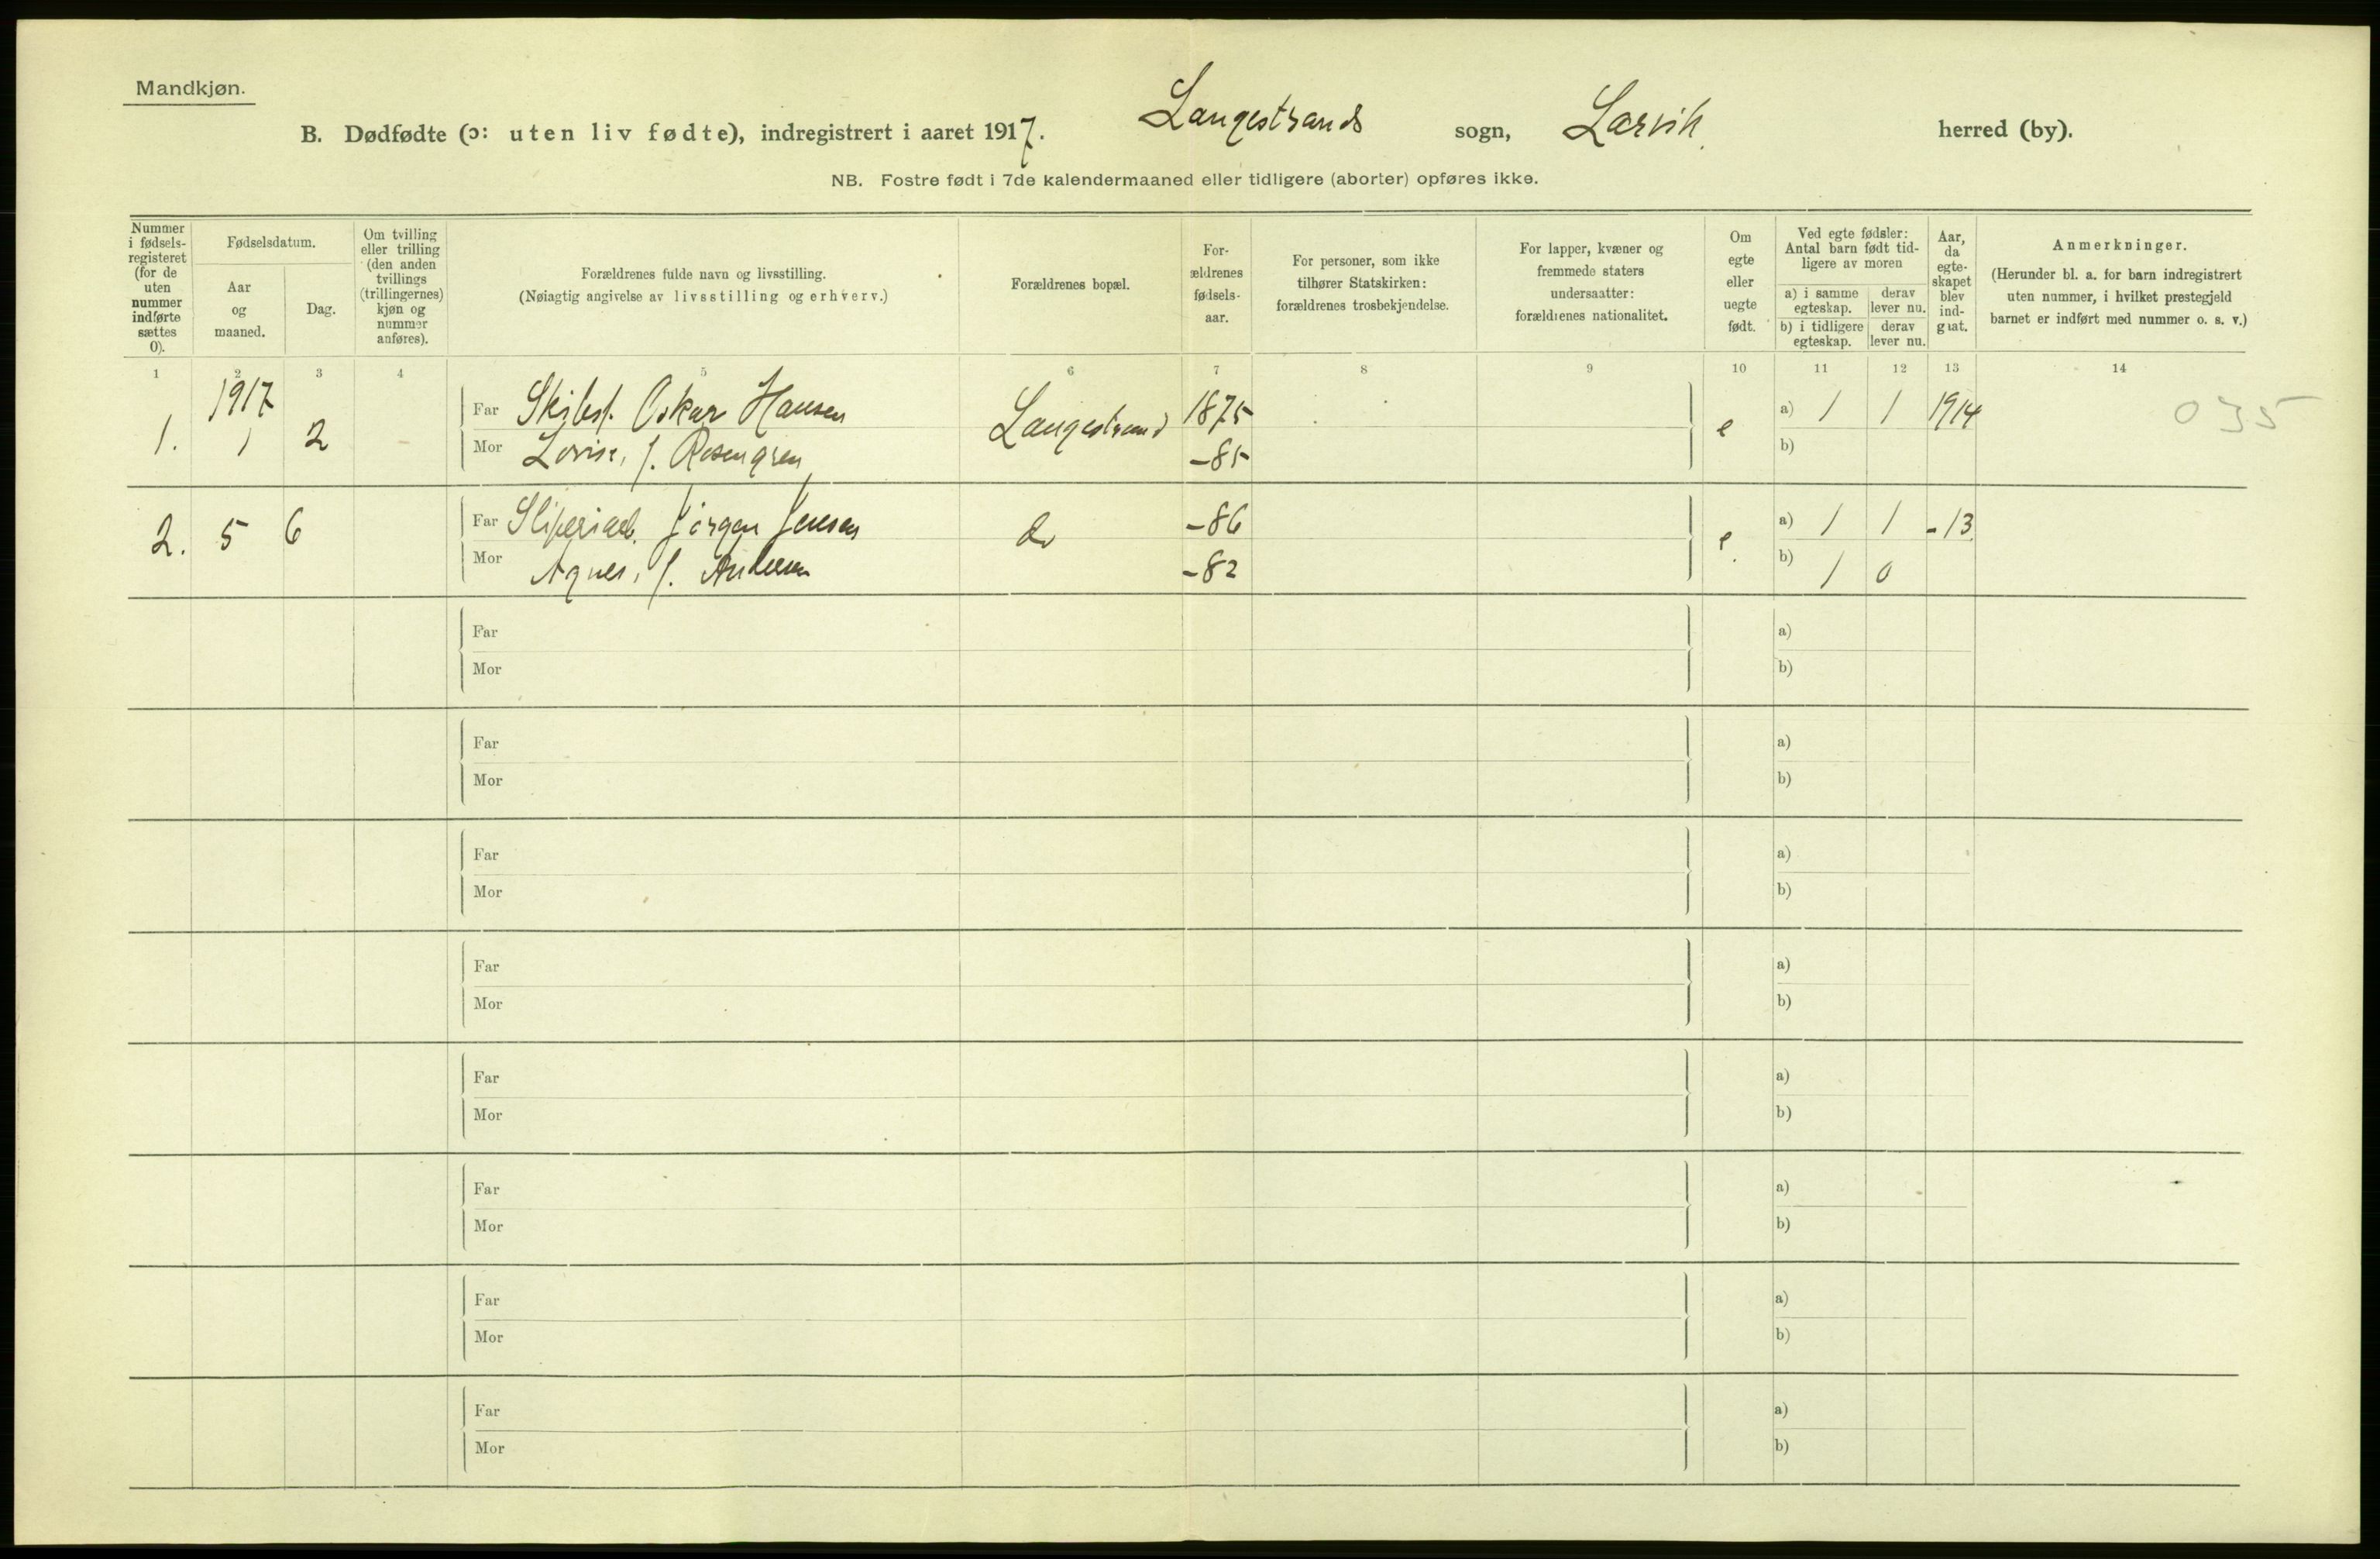 Mandkjøn.
B. Dødfødte (ɔ: uten liv fødte), indregistrert i aaret 1917. Langestrands sogn, Larvik herred (by).
NB. Fostre født i 7de kalendermaaned eller tidligere (aborter) opføres ikke.
Nummer i fødsels-registeret (for de uten nummer indførte sættes 0).
Fødselsdatum.
Aar og maaned.
Dag.
Om tvilling eller trilling (den anden tvillings (trillingernes) kjøn og nummer anføres).
Forældrenes fulde navn og livsstilling.
(Nøiagtig angivelse av livsstilling og erhverv.)
Forældrenes bopæl.
For-ældrenes fødsels-aar.
For personer, som ikke tilhører Statskirken: forældrenes trosbekjendelse.
For lapper, kvæner og fremmede staters undersaatter: forældrenes nationalitet.
Om egte eller uegte født.
Ved egte fødsler: Antal barn født tid-ligere av moren
a) i samme egteskap. derav lever nu.
b) i tidligere egteskap. derav lever nu.
Aar, da egte-skapet blev ind-gaat.
Anmerkninger.
(Herunder bl. a. for barn indregistrert uten nummer, i hvilket prestegjeld barnet er indført med nummer o. s. v.)
1 2 3 4 5 6 7 8 9 10 11 12 13 14
1917
1. 1 2 - Far Skibsf. Oskar Hansen Langestrand 1875 e a) 1 1 1914 035
Mor Lovise, f. Rosengren -85 b)
2. 5 6 Far Sliperiarb. Jørgen Jensen do -86 e. a) 1 1 -13
Mor Agnes, f. Andersen -82 b) 1 0
Far a)
Mor b)
Far a)
Mor b)
Far a)
Mor b)
Far a)
Mor b)
Far a)
Mor b)
Far a)
Mor b)
Far a)
Mor b)
Far a)
Mor b)